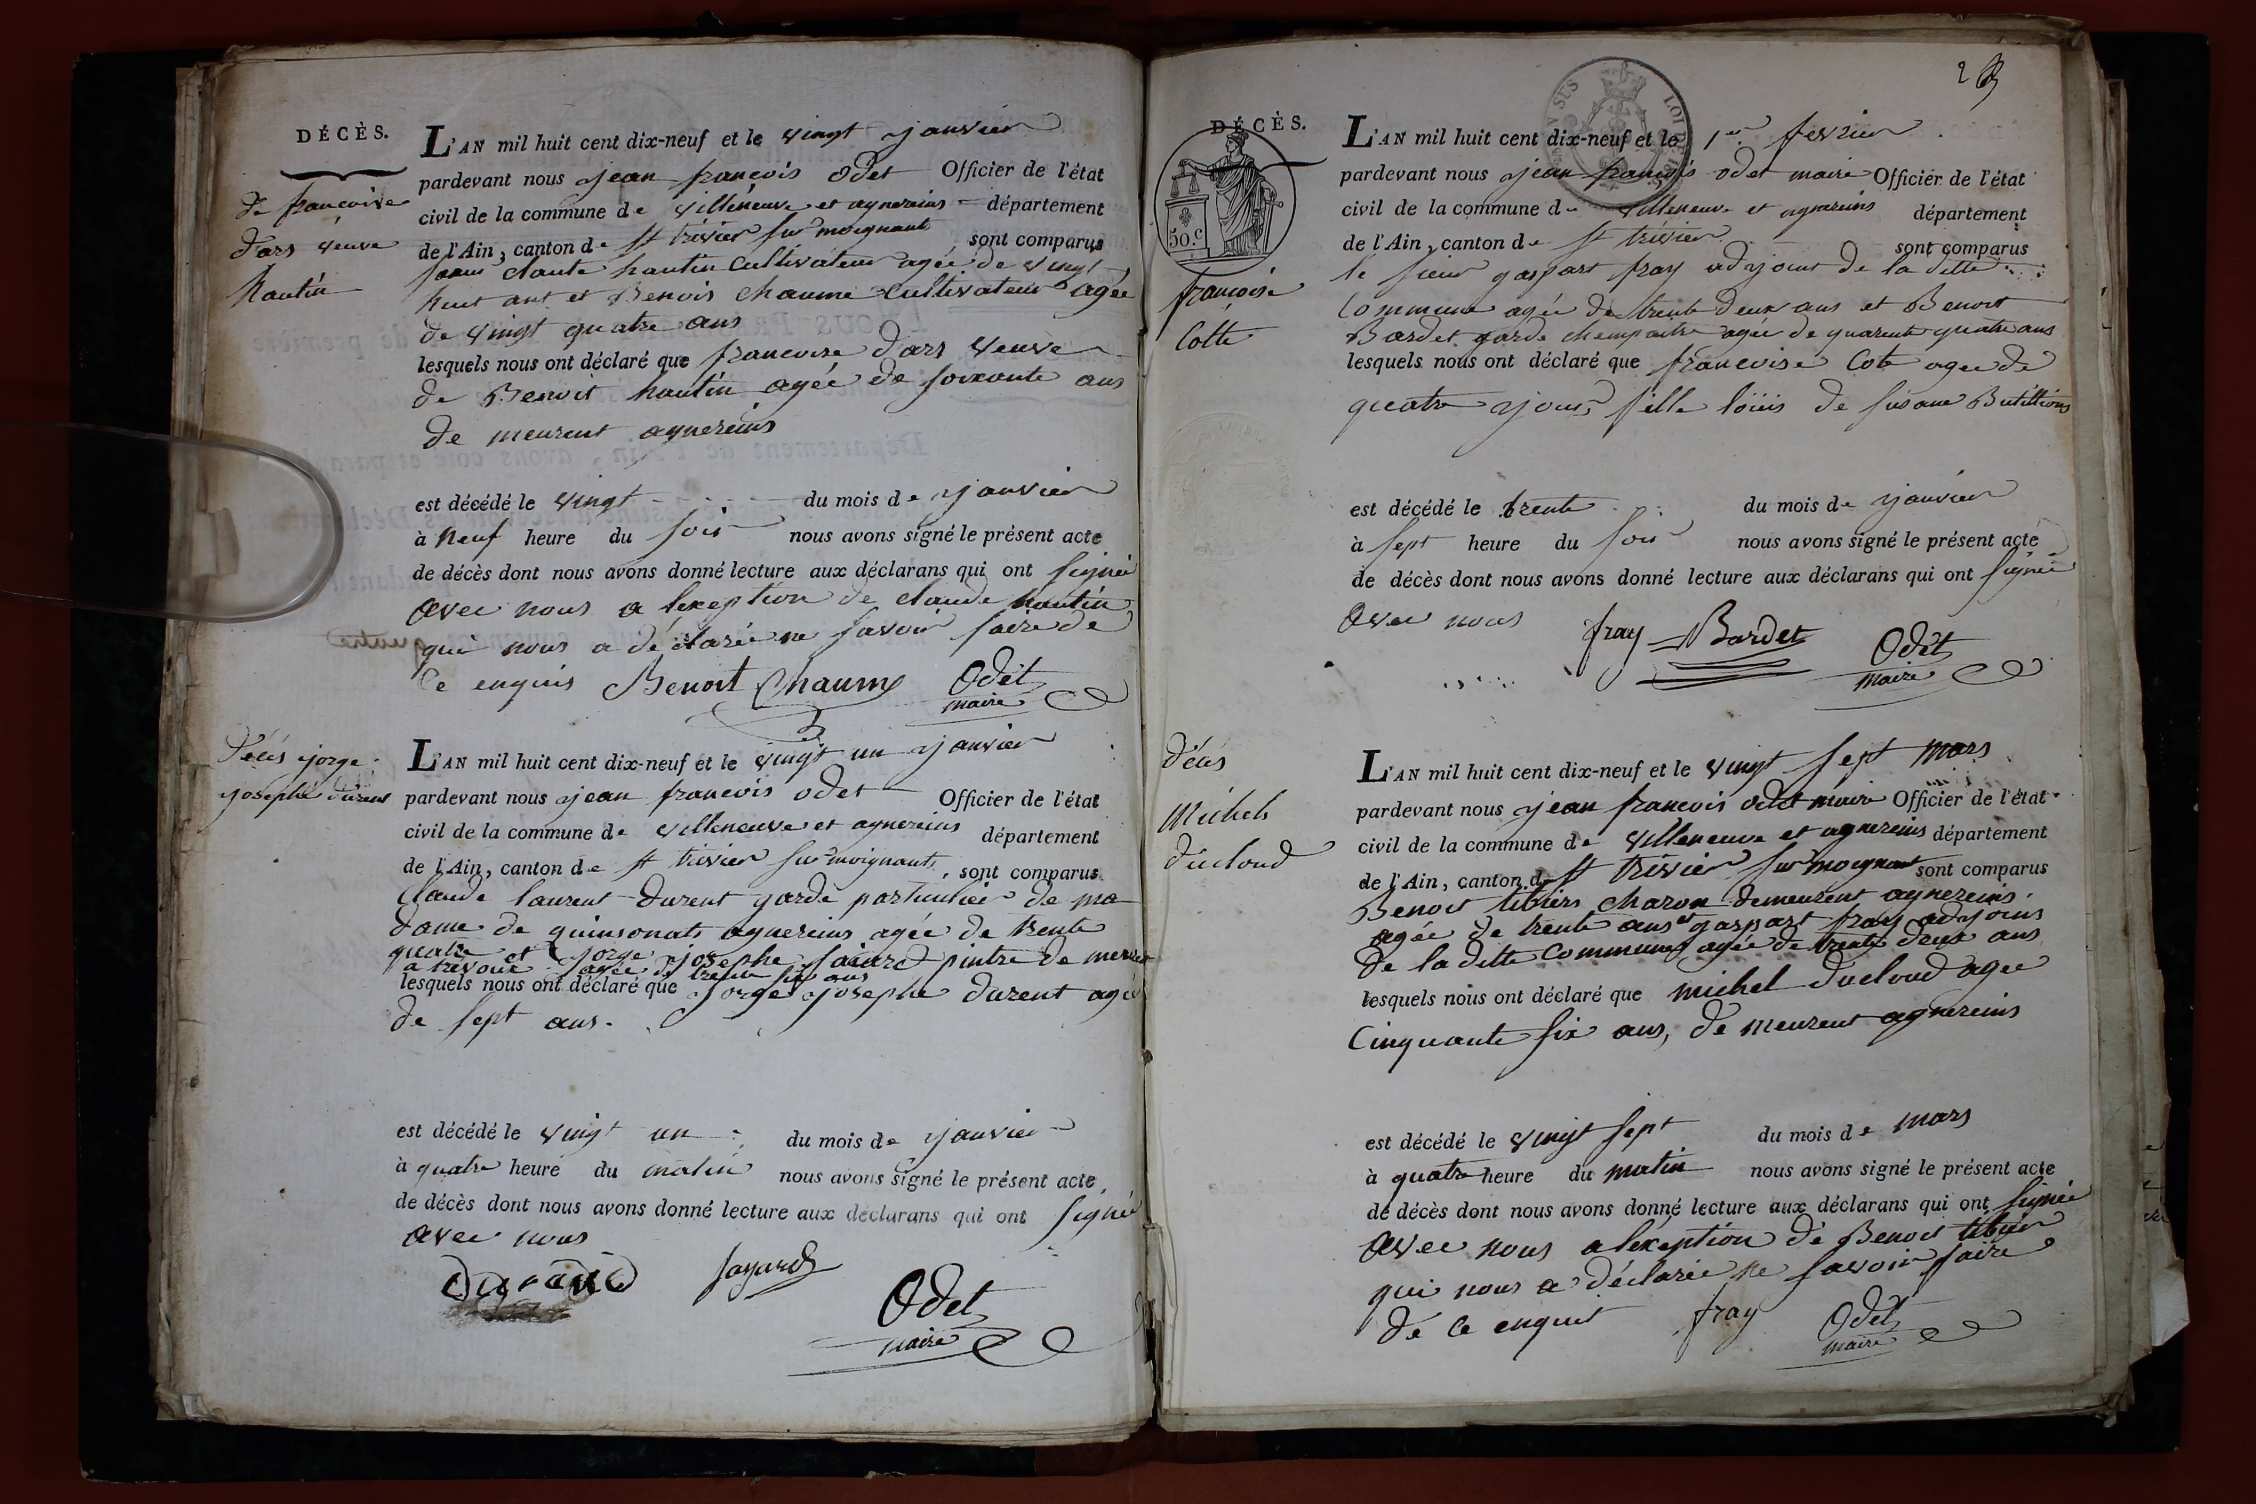 DÉCÈS.
de françoise
d'ars veuve
hautin
L'AN mil huit cent dix-neuf et le vingt janvier
pardevant nous jean françois odet Officier de l'état
civil de la commune de villeneuve et agnereins département
de l'Ain, canton de st trivier sur moignant, sont comparus
claute hautin cultivateur agée de vingt
huit ans et Benois chaume cultivateur agée
de vingt quatre ans
lesquels nous ont déclaré que francoise d'ars veuve
de Benoit hautin agée de soixante ans
de meurent agnereins
est décédé le vingt du mois de janvier
à neuf heure du soir nous avons signé le présent acte
de décès dont nous avons donné lecture aux déclarans qui ont signée
avec nous a lexeption de claude hautin
qui nous a déclarée ne savoir faire de
ce enquis Benoit Chaume Odet
maire
Décès jorge
josephe durent
L'AN mil huit cent dix-neuf et le vingt un janvier
pardevant nous jean francois odet Officier de l'état
civil de la commune de villeneuve et agnereins département
de l'Ain, canton de st trivier sur moignant, sont comparus
Claude laurent durent garde particulier de ma
dame de quinsonats agnereins agée de trente
quatre et jorge josephe faiard pintre de meurent
a trevoux agée de trente six ans
lesquels nous ont déclaré que jorge josephe durent agée
de sept ans.
est décédé le vingt un du mois de janvier
à quatre heure du matin nous avons signé le présent acte
de décès dont nous avons donné lecture aux déclarans qui ont signé
avec nous
Durand fayard Odet
maire
2
DÉCÈS.
50.c
LOI DE 18
françoise
Cotte
L'AN mil huit cent dix-neuf et le 1er fevrier
pardevant nous jean françois odet maire Officier de l'état
civil de la commune de villeneuve et agnereins département
de l'Ain, canton de st trivier sont comparus
le sieur gaspart fray adjoint de la ditte
Commune agée de trente deux ans et Benoit
Bardet garde champaitre agée de quarente quatre ans
lesquels nous ont déclaré que francoise Cote agee de
quatre jours fille löüis de susane Butillions
est décédé le trente du mois de janvier
à sept heure du soir nous avons signé le présent acte
de décès dont nous avons donné lecture aux déclarans qui ont signée
avec nous fray Bardet Odet
maire
Décès
Michel
ducloud
L'AN mil huit cent dix-neuf et le vingt sept mars
pardevant nous jean francois odet maire Officier de l'état
civil de la commune de villeneuve et agnereins département
de l'Ain, canton de st trivier sur moignant sont comparus
Benoit tibier charon demeurent agnereins
agée de trente ans et gaspart fray adjoint
de la ditte Commune agée de trente deux ans
lesquels nous ont déclaré que michel ducloud agee
Cinquante six ans, de meurent agnereins
est décédé le vingt sept du mois de mars
à quatre heure du matin nous avons signé le présent acte
de décès dont nous avons donné lecture aux déclarans qui ont signée
avec nous a lexeption de Benoit tibier
qui nous a déclarée ne savoir faire
de ce enquit fray Odet
maire